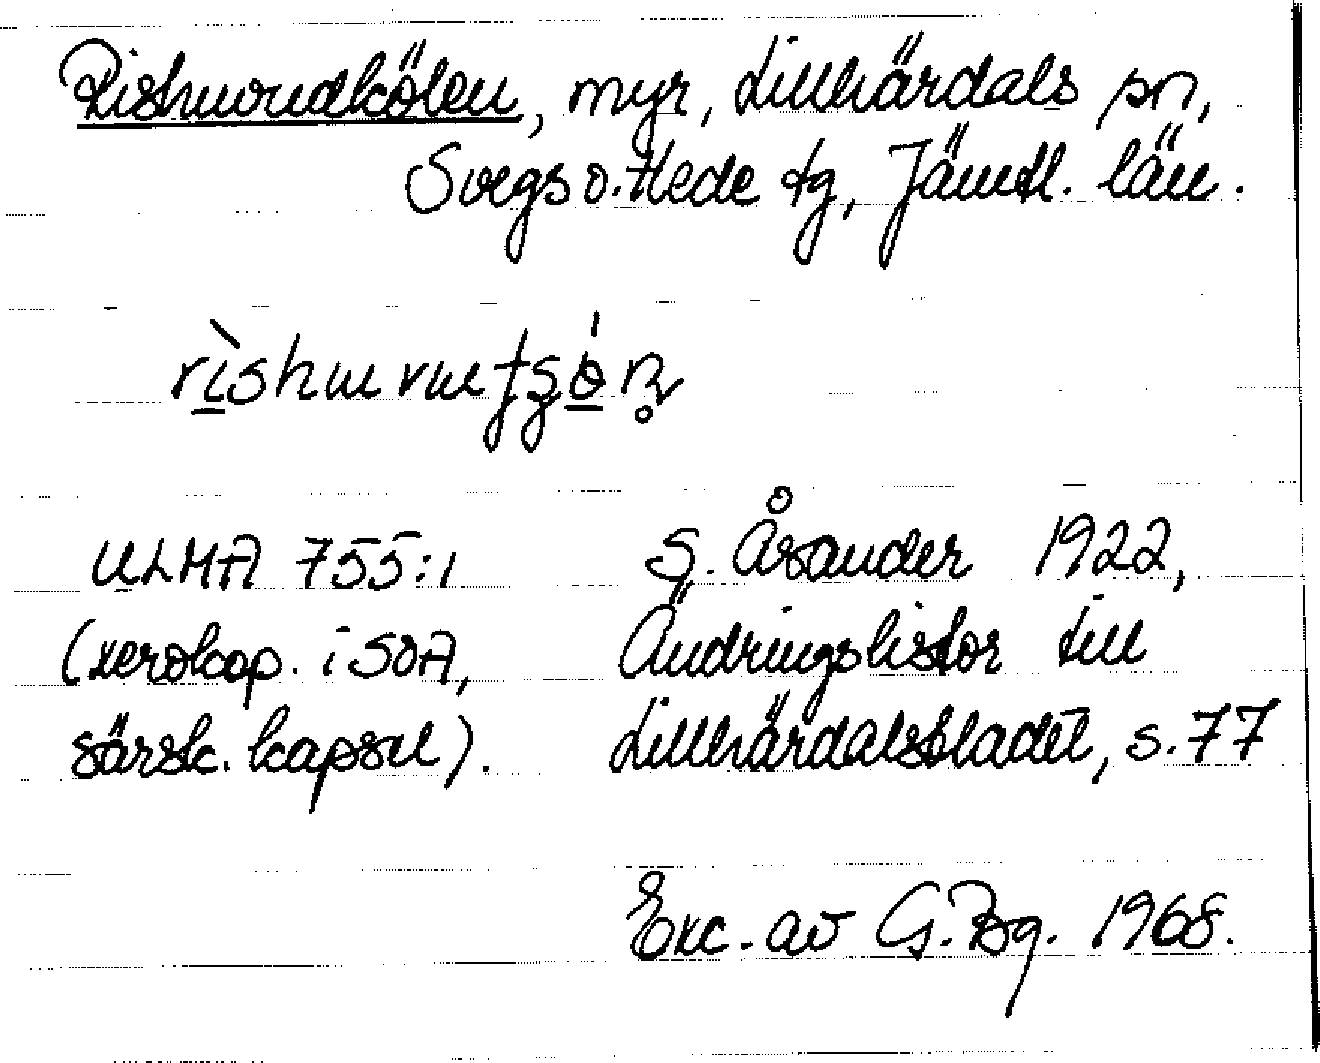 Rishuvudkölen, myr, Lillhärdals sn,
Svegs o. Hede tg, Jämtl. län.
ULMA 755:1 S. Åsander 1922,
(xerokop. i SOA, Ändringslistor till
särsk. kapsel). Lillhärdalsbladet, s. 77
Exc. av G. Bg. 1968.